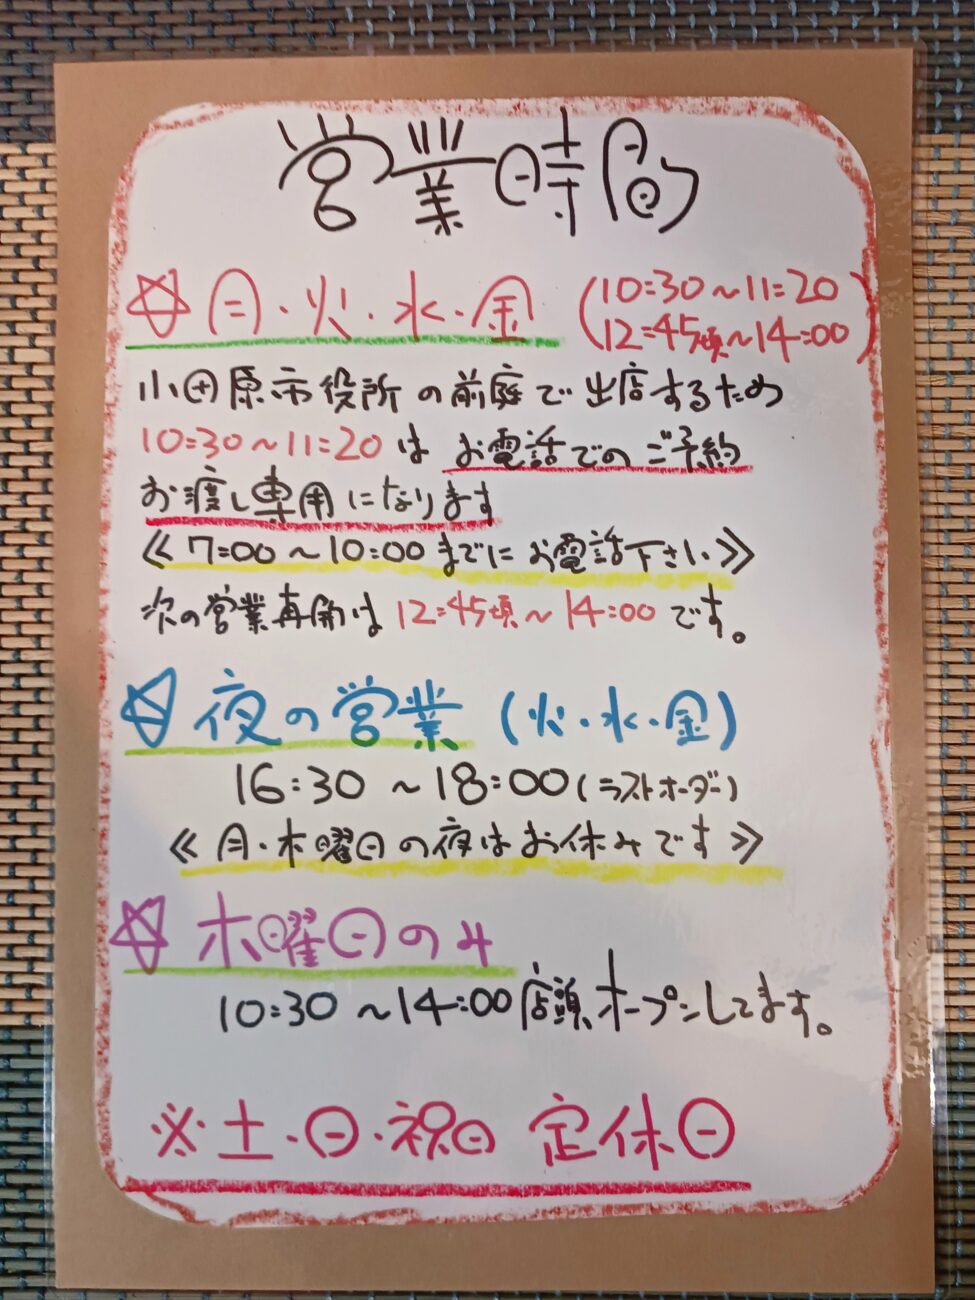 営業時間
☆月・火・水・金 (10:30～11:20
12:45頃～14:00)
小田原市役所の前庭で出店するため
10:30～11:20は お電話でのご予約
お渡し専用になります
《7:00～10:00までにお電話下さい》
次の営業再開は12:45頃～14:00です。
☆夜の営業(火・水・金)
16:30～18:00(ラストオーダー)
《月・木曜日の夜はお休みです》
☆木曜日のみ
10:30～14:00店頭オープンしてます。
※土・日・祝日 定休日